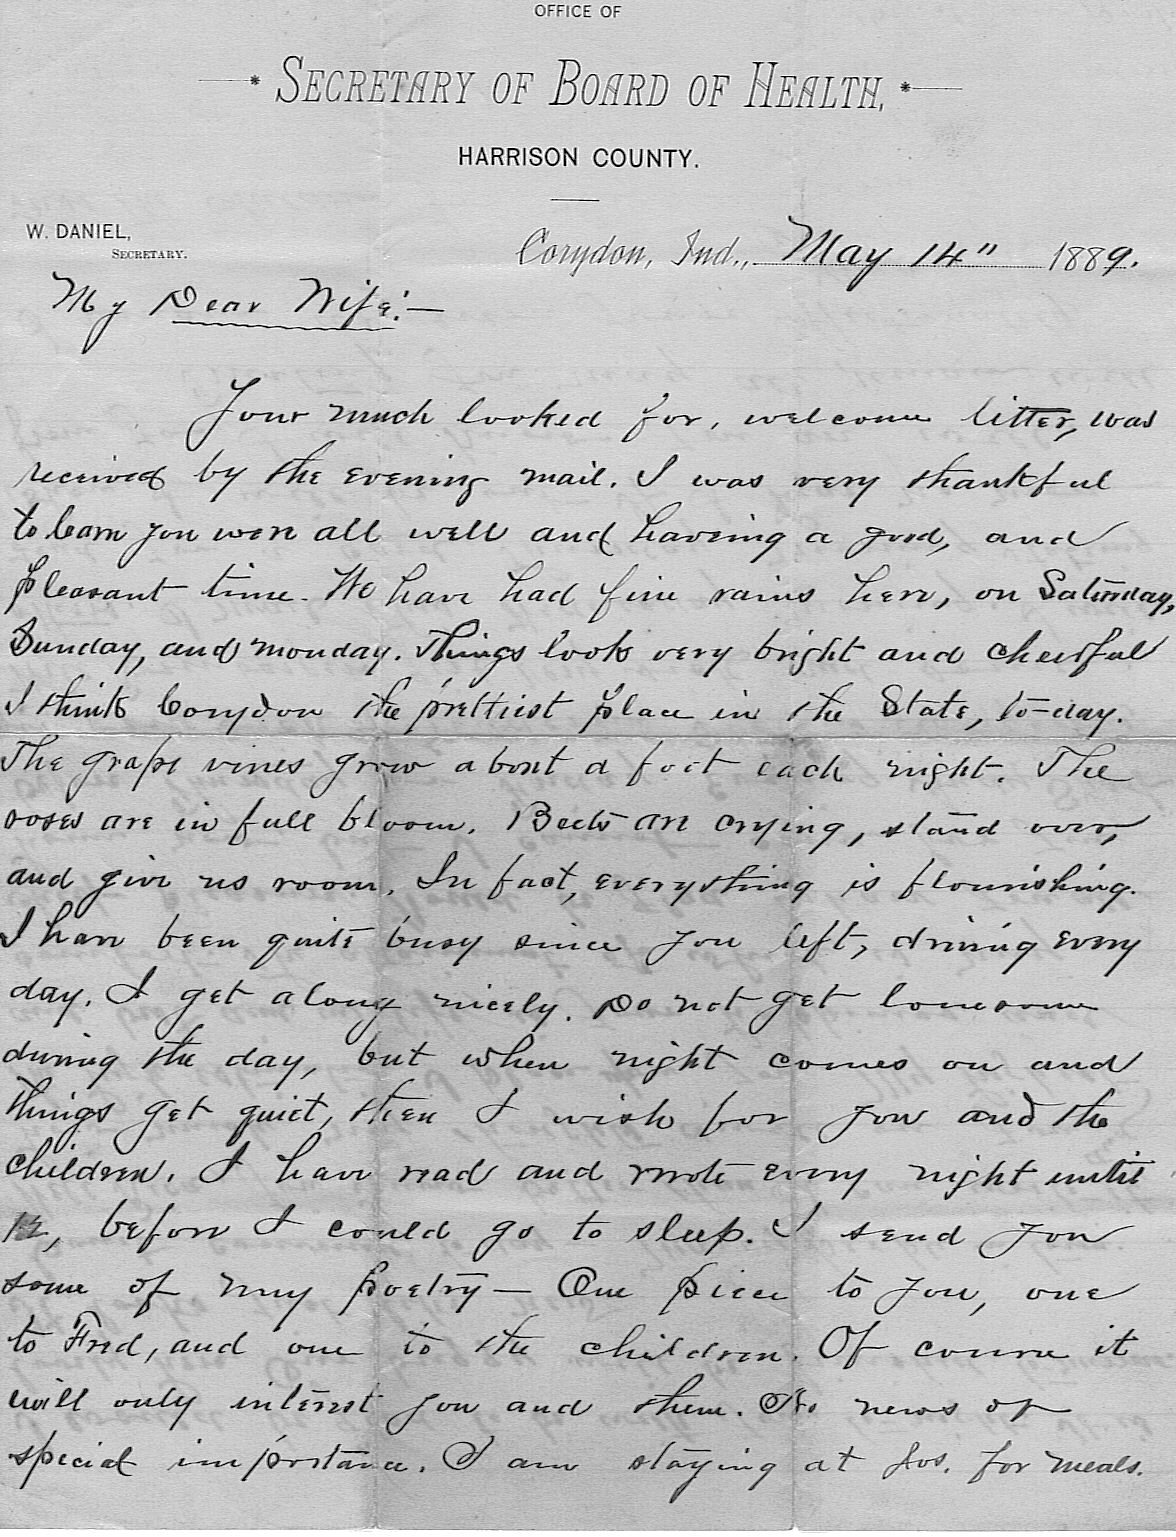 OFFICE OF
SECRETARY OF BOARD OF HEALTH,
HARRISON COUNTY.
W. DANIEL,
SECRETARY.
Corydon, Ind., May 14" 1889.
My Dear Wife:—
Your much looked for, welcome letter, was
received by the evening mail. I was very thankful
to learn you were all well and having a good, and
pleasant time. We have had fine rains here, on Saturday,
Sunday, and monday. Things look very bright and cheerful
I think Corydon the prettiest place in the State, to-day.
The grape vines grow about a foot each night. The
roses are in full bloom. Beets are crying, stand over,
and give us room. In fact, everything is flourishing.
I have been quite busy since you left, driving every
day. I get along nicely. Do not get lonesome
during the day, but when night comes on and
things get quiet, then I wish for you and the
children. I have read and wrote every night until
12, before I could go to sleep. I send you
some of my poetry — One piece to you, one
to Fred, and one to the children. Of course it
will only interest you and them. No news of
special importance. I am staying at Jos. for meals.